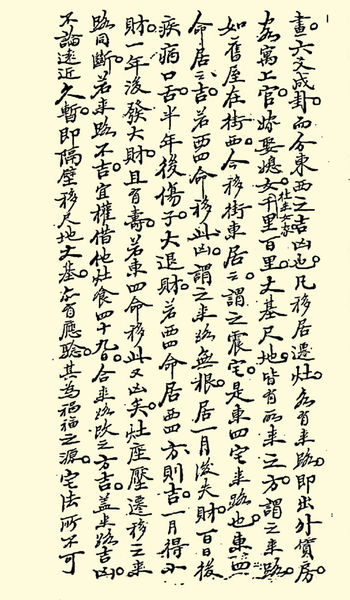 畫六爻成卦而分東西之吉凶也凡移居遷灶亦有來路即出外賃房
客寓上官嫁娶媳女千里百里丈基尺地皆有所來之方謂之來路
如舊屋在街西今移街東居之謂之震宅是東四宅來路也東四
命居之吉若西四命移此凶謂之來路無根居一月後失財百日後
疾病口舌半年後傷子大退財若西四命居西四方則吉一月得小
財一年後發大財且有壽若東四命移此又凶矣灶座壓遷移之來
路同斷若來路不吉宜權借他灶食四十九日合來路改之方吉蓋來路吉凶
不論遠近久暫即隔壁移尺地丈基亦有應驗其為禍福之源宅法所不可